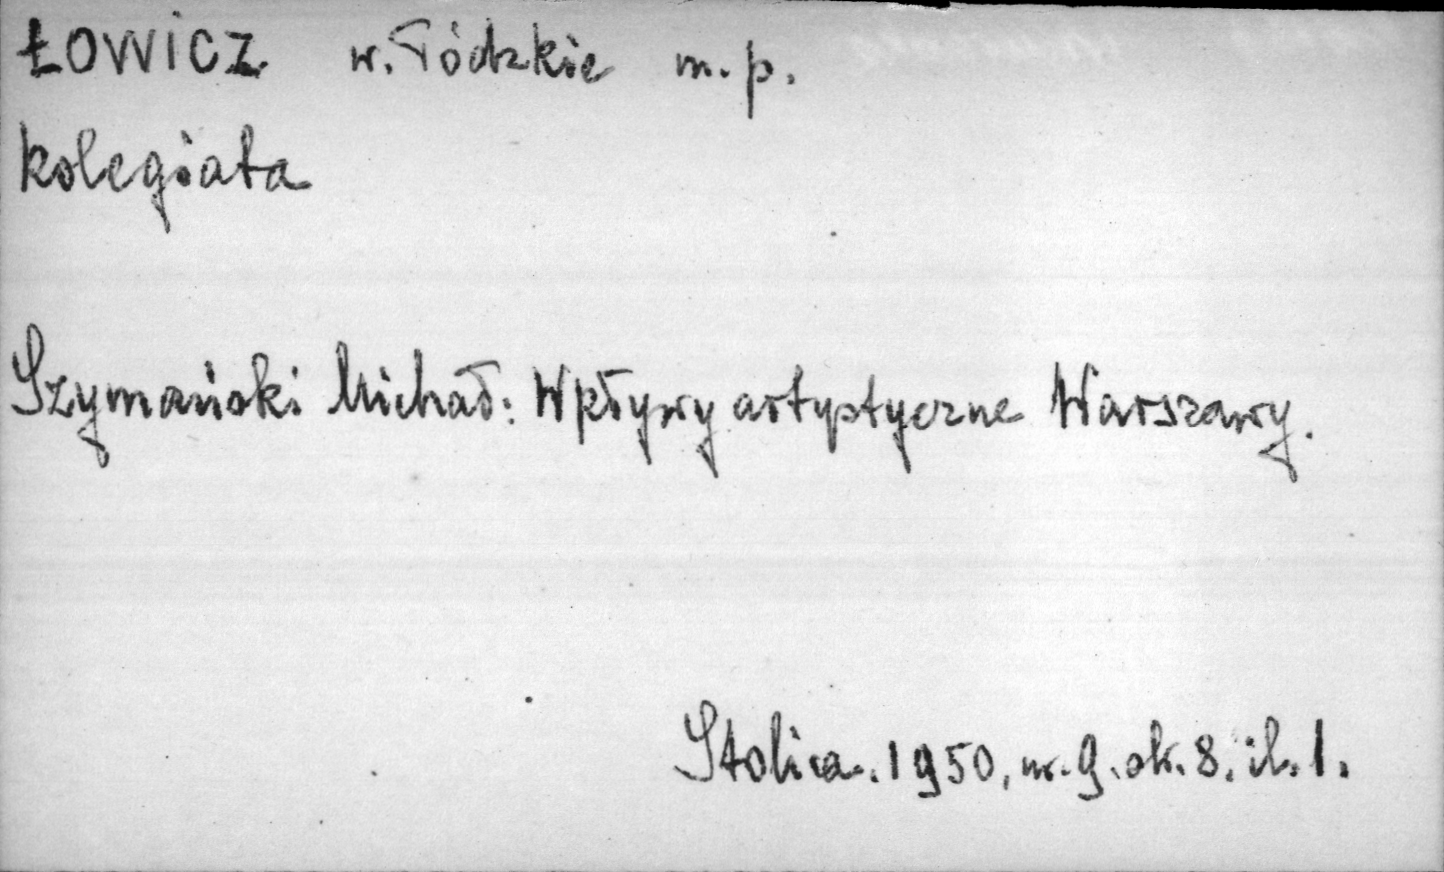 ŁOWICZ w. łódzkie m. p.
kolegiata
Szymański Michał: Wpływy artystyczne Warszawy.
Stolica. 1950, nr. 9. ok. 8. il. 1.